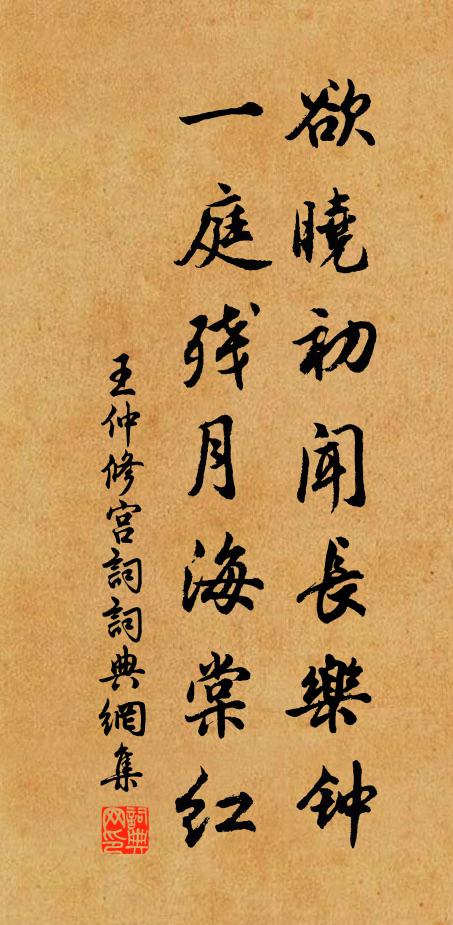 欲曉初闻長樂钟
一庭残月海棠红
王仲修宫詞詞典網集
詞典网印